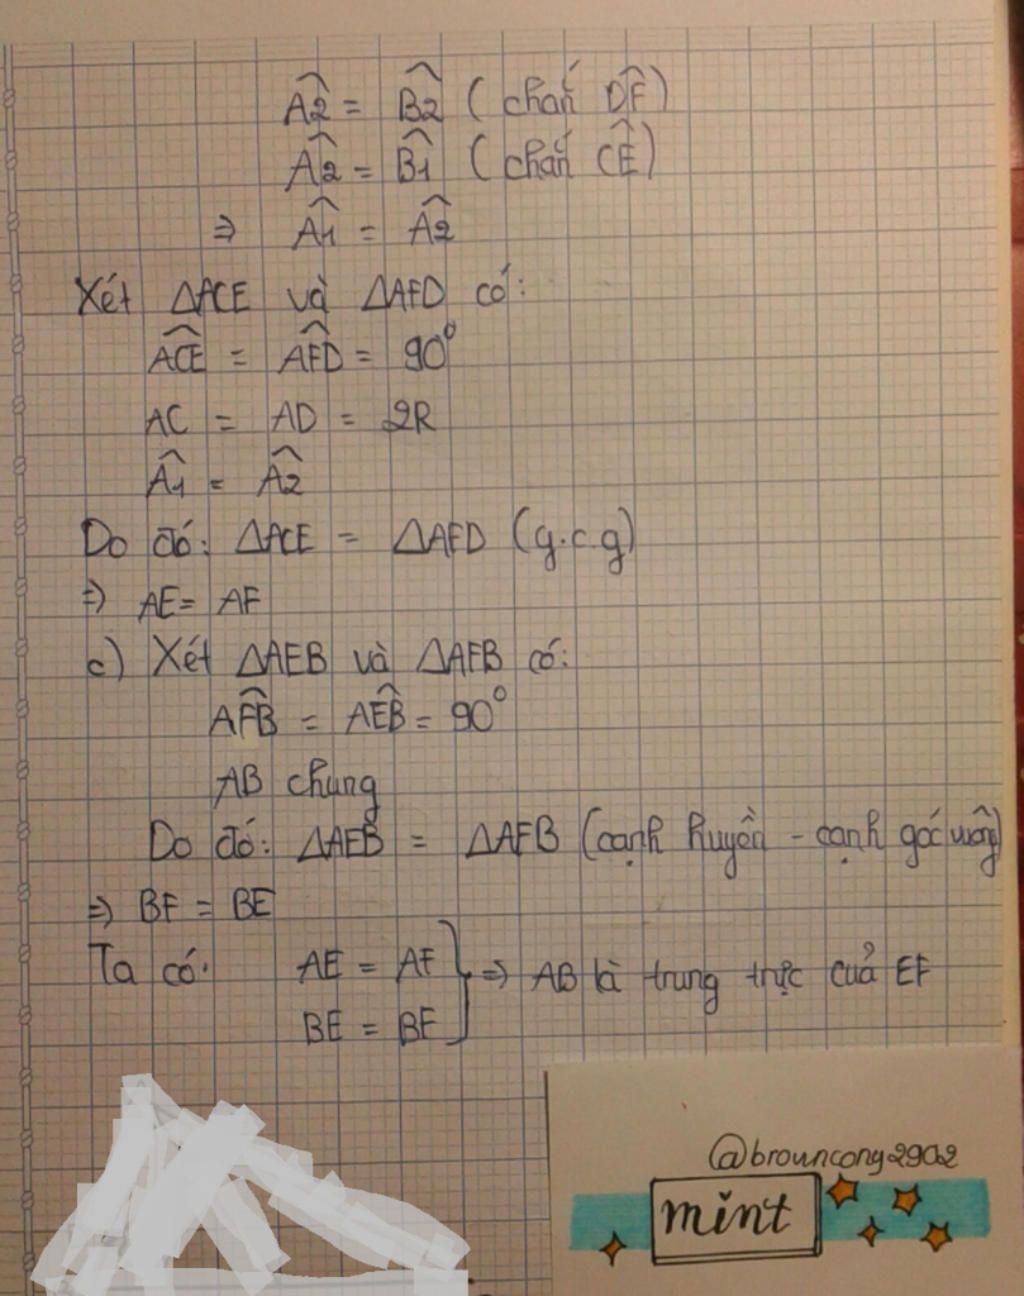 Â2 = B̂2 ( chắn DF̂)
Â2 = B̂1 ( chắn CÊ)
⇒ Â1 = Â2
Xét ΔACE và ΔAFD có:
ACE = AFD = 90⁰
AC = AD = 2R
Â1 = Â2
Do đó: ΔACE = ΔAFD (g.c.g)
⇒ AE = AF
c) Xét ΔAEB và ΔAFB có:
AFB = AEB = 90⁰
AB chung
Do đó: ΔAEB = ΔAFB (cạnh huyền - cạnh góc vuông)
⇒ BF = BE
Ta có: AE = AF } ⇒ AB là trung trực cuả EF
BE = BF
@brouncony2902
mint